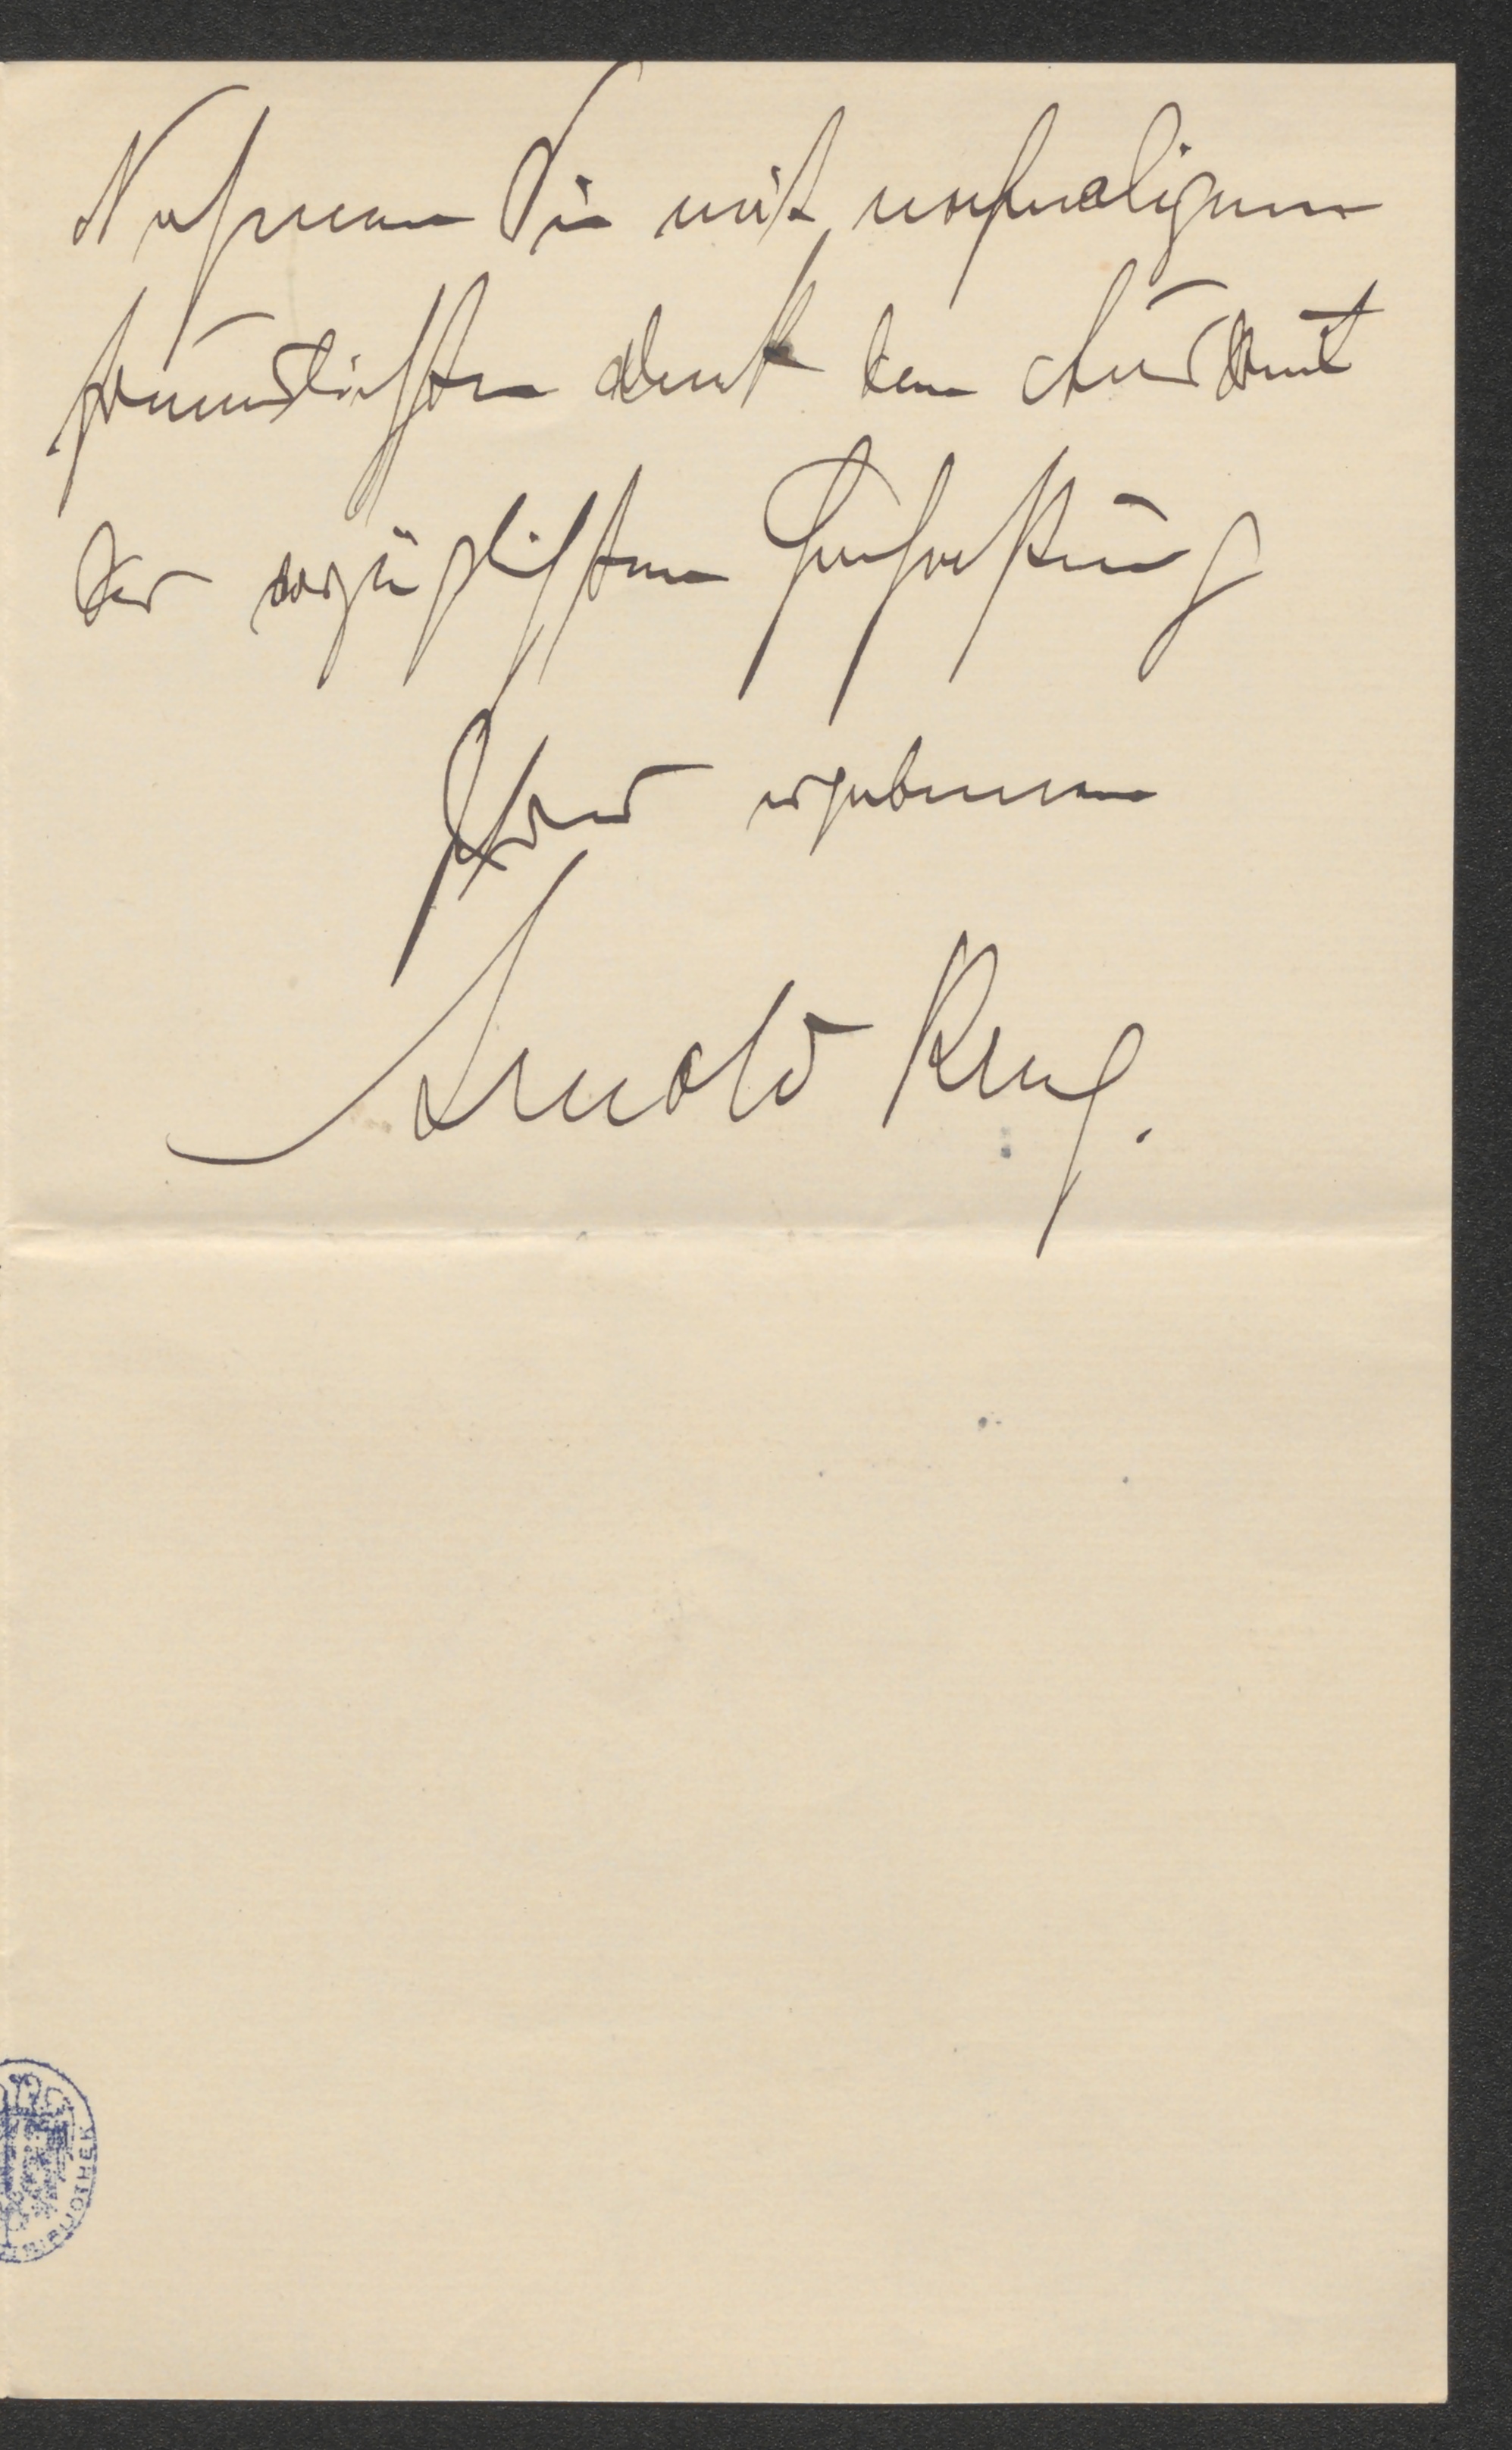 Nehmen Sie mit nochmaligem
freundlichsten Dank den Ausdruck
der vorzüglichsten Hochachtung
Ihres ergebenen
Arnold Krug.
BIBLIOTHEK